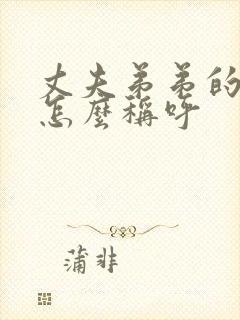 丈夫弟弟的
怎麼稱呼
蒲非